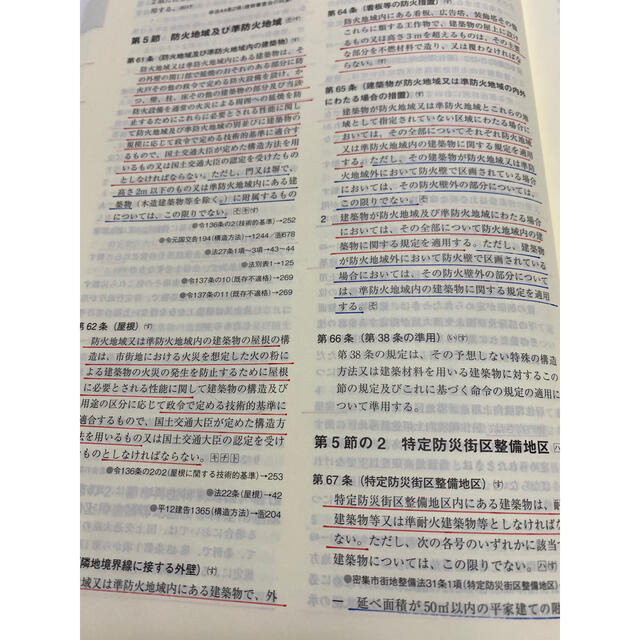 第5節 防火地域及び準防火地域
第61条(防火地域及び準防火地域内の建築物)
防火地域又は準防火地域内にある建築物は、そ
の外壁の開口部で延焼のおそれのある部分に防
火戸その他の政令で定める防火設備を設け、か
つ、壁、柱、床その他の建築物の部分及び当該
防火設備を通常の火災による周囲への延焼を防
止するためにこれらに必要とされる性能に関し
て防火地域及び準防火地域の別並びに建築物の
規模に応じて政令で定める技術的基準に適合す
るもので、国土交通大臣が定めた構造方法を用
いるもの又は国土交通大臣の認定を受けたもの
としなければならない。ただし、門又は塀で、
高さ2m以下のもの又は準防火地域内にある建
築物(木造建築物等を除く。)に附属するもの
については、この限りでない。
●令136条の2(技術的基準)→252
●令元国交告194(構造方法)→1244/
678
●法27条1項〜3項→43〜44
●法別表1→125
●令137条の10(既存不適格)→269
●令137条の11(既存不適格)→269
第62条(屋根)
防火地域又は準防火地域内の建築物の屋根の構
造は、市街地における火災を想定した火の粉に
よる建築物の火災の発生を防止するために屋根
に必要とされる性能に関して建築物の構造及び
用途の区分に応じて政令で定める技術的基準に
適合するもので、国土交通大臣が定めた構造方
法を用いるもの又は国土交通大臣の認定を受け
たものとしなければならない。
●令136条の2の2(屋根に関する技術的基準)→253
●法22条(屋根)→42
●平12建告1365(構造方法)→
204
隣地境界線に接する外壁)
域又は準防火地域内にある建築物で、外
第64条(看板等の防火措置)
防火地域内にある看板、広告塔、装飾塔その他
これらに類する工作物で、建築物の屋上に設け
るもの又は高さ3mを超えるものは、その主要
な部分を不燃材料で造り、又は覆わなければな
らない。
第65条(建築物が防火地域又は準防火地域の内外
にわたる場合の措置)
建築物が防火地域又は準防火地域とこれらの地
域として指定されていない区域にわたる場合に
おいては、その全部についてそれぞれ防火地域
又は準防火地域内の建築物に関する規定を適用
する。ただし、その建築物が防火地域又は準防
火地域外において防火壁で区画されている場合
においては、その防火壁外の部分については、
この限りでない。
2 建築物が防火地域及び準防火地域にわたる場合
においては、その全部について防火地域内の建
築物に関する規定を適用する。ただし、建築物
が防火地域外において防火壁で区画されている
場合においては、その防火壁外の部分について
は、準防火地域内の建築物に関する規定を適用
する。
第66条(第38条の準用)
第38条の規定は、その予想しない特殊の構造
方法又は建築材料を用いる建築物に対するこの
節の規定及びこれに基づく命令の規定の適用に
ついて準用する。
第5節の2 特定防災街区整備地区
第67条(特定防災街区整備地区)
特定防災街区整備地区内にある建築物は、耐
建築物等又は準耐火建築物等としなければな
ない。ただし、次の各号のいずれかに該当
建築物については、この限りでない。
●密集市街地整備法31条1項(特定防災街区整備地区)
一 延べ面積が50㎡以内の平家建ての附